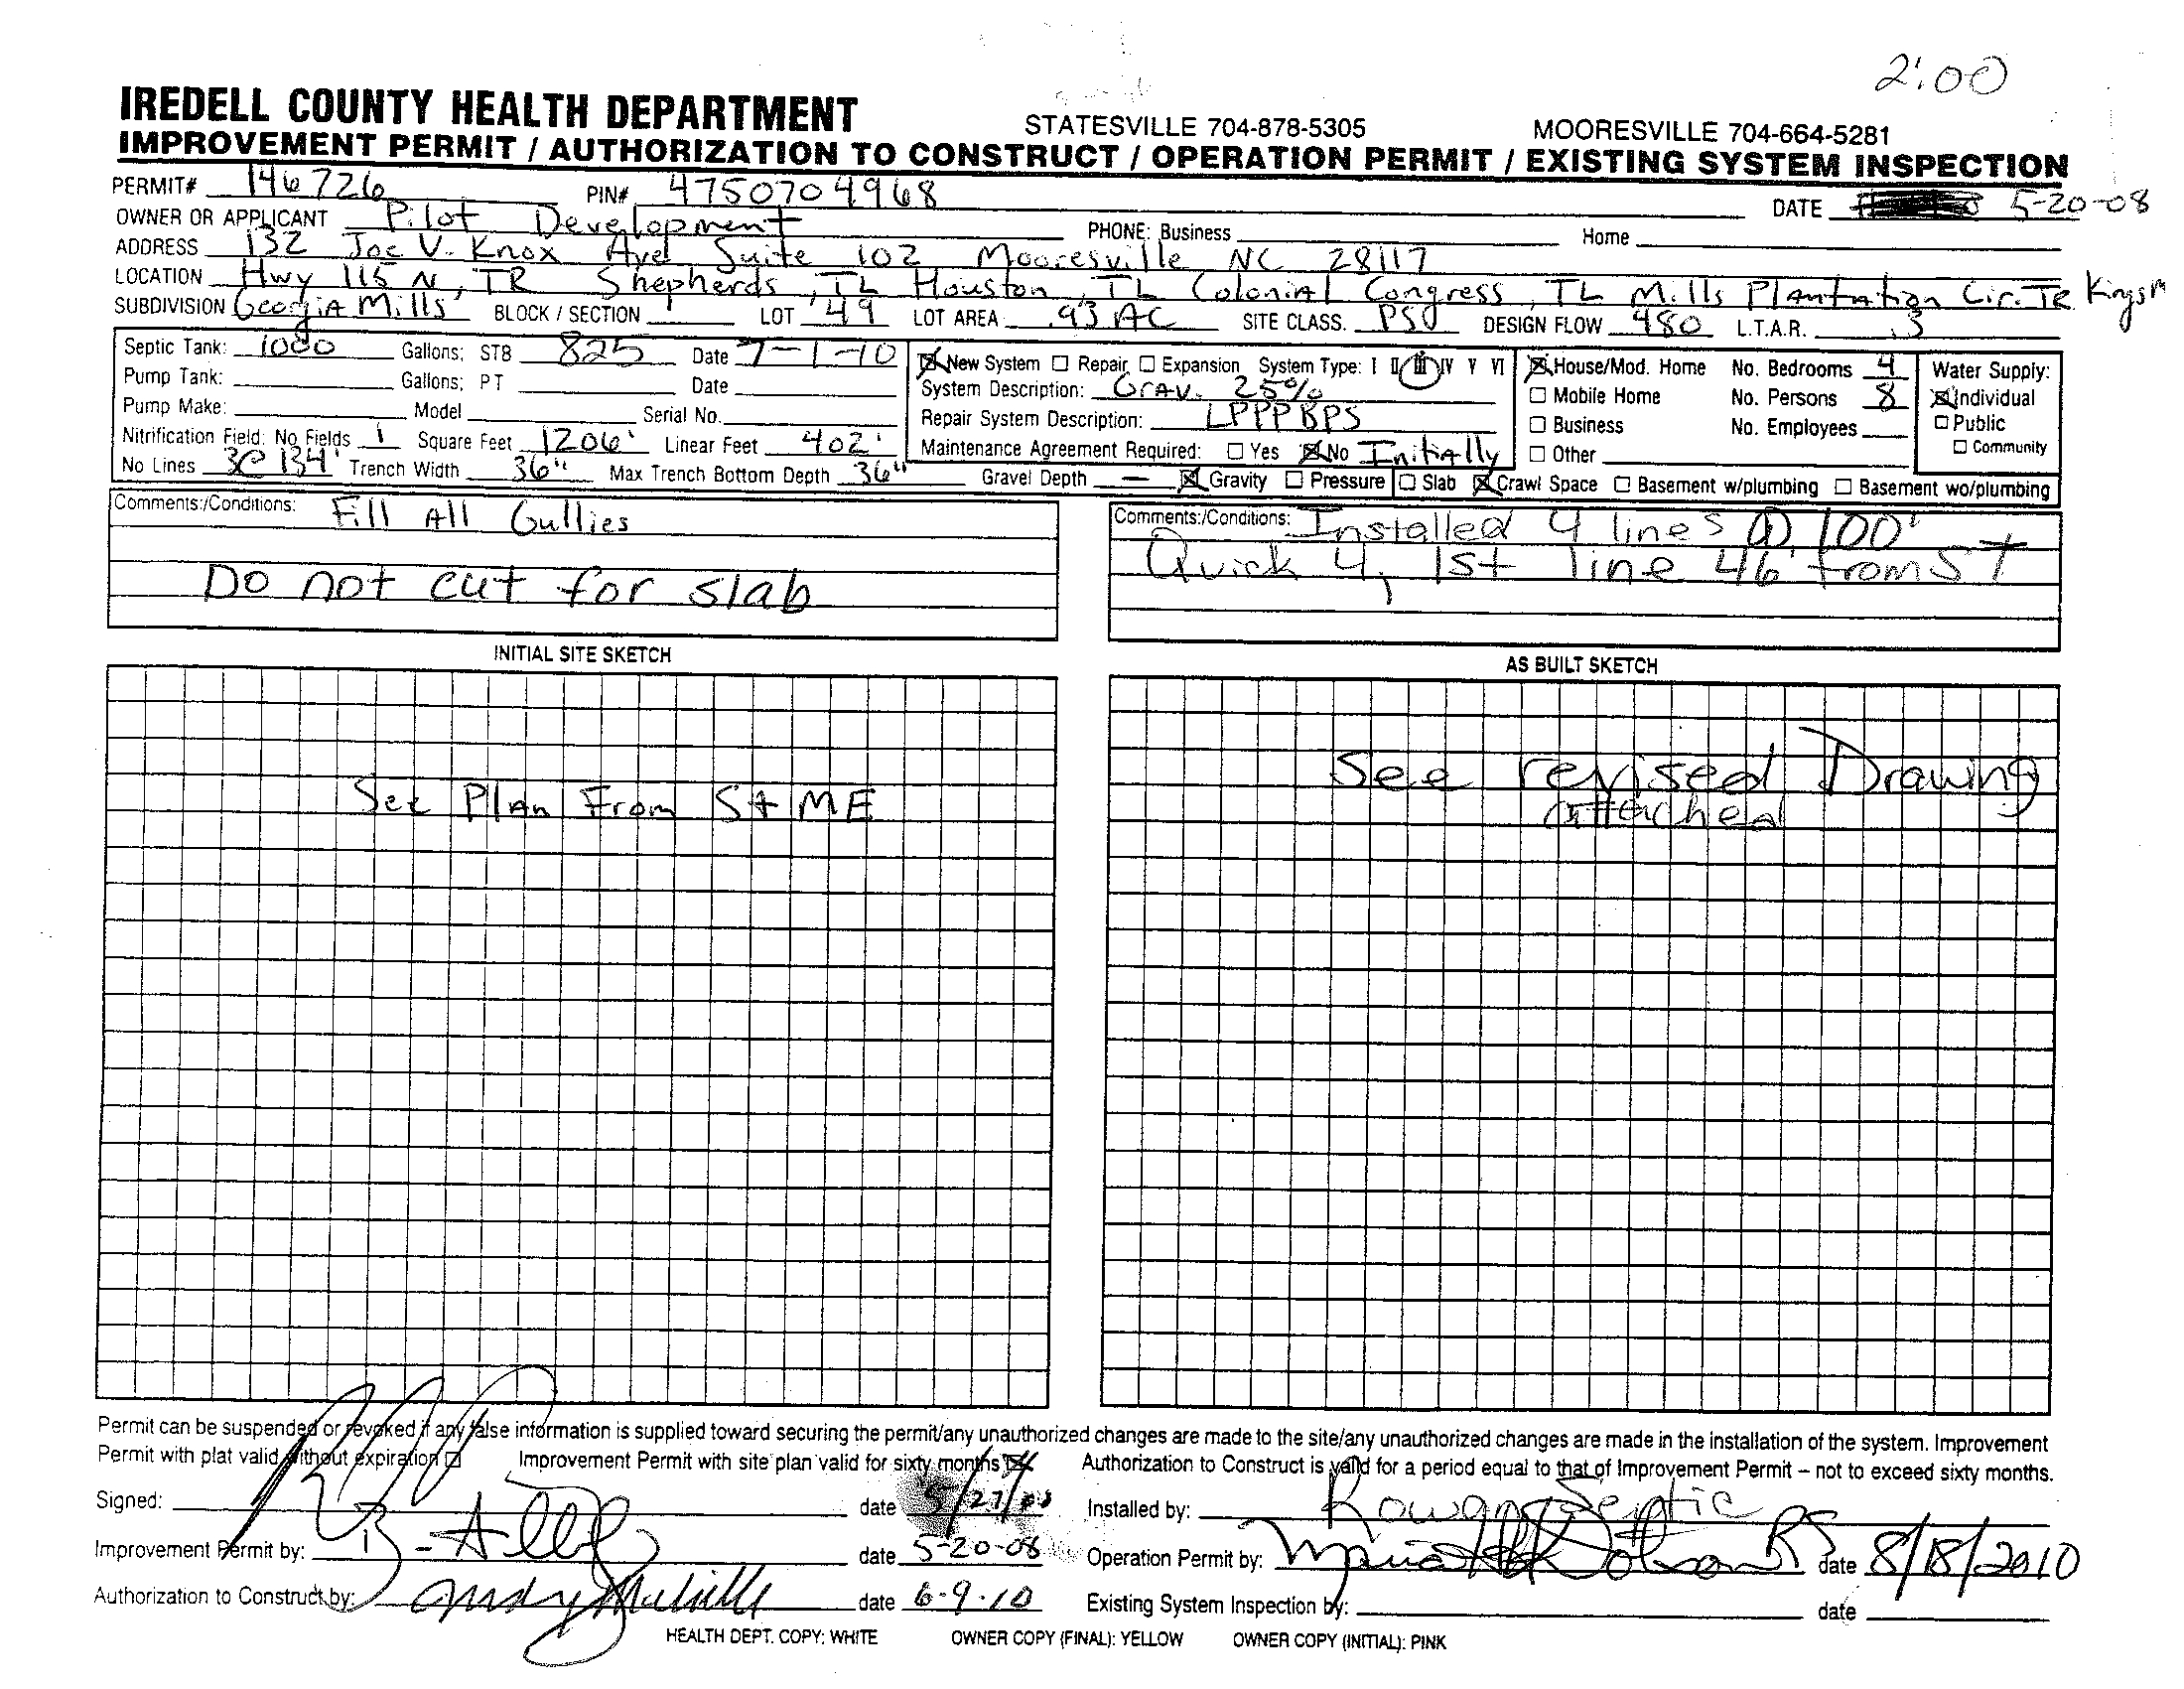 2:00
IREDELL COUNTY HEALTH DEPARTMENT STATESVILLE 704-878-5305 MOORESVILLE 704-664-5281
IMPROVEMENT PERMIT / AUTHORIZATION TO CONSTRUCT / OPERATION PERMIT / EXISTING SYSTEM INSPECTION
PERMIT# 146726 PIN# 4750704968 DATE 5-20-08
OWNER OR APPLICANT Pilot Development PHONE: Business Home
ADDRESS 132 Joe V. Knox Ave Suite 102 Mooresville NC 28117
LOCATION Hwy 115 N, TR Shepherds, TL Houston, TL Colonial Congress, TL Mills Plantation Cir. TR
SUBDIVISION Georgia Mills BLOCK / SECTION LOT 49 LOT AREA .93 AC SITE CLASS. PSU DESIGN FLOW 480 L.T.A.R. .3
Septic Tank: 1000 Gallons; STB 825 Date 7-1-10
Pump Tank: Gallons; PT Date
Pump Make: Model Serial No.
Nitrification Field: No Fields 1 Square Feet 1206' Linear Feet 402'
No Lines 3@ 134' Trench Width 36" Max Trench Bottom Depth 36" Gravel Depth — Gravity Pressure Slab Crawl Space Basement w/plumbing Basement wo/plumbing
New System Repair Expansion System Type: I II III IV V VI
System Description: Grav. 25%
Repair System Description: LPPPBPS
Maintenance Agreement Required: Yes No Initially
House/Mod. Home No. Bedrooms 4
Mobile Home No. Persons 8
Business No. Employees
Other
Water Supply:
Individual
Public
Community
Comments:/Conditions: Fill All Gullies
Do not cut for slab
Comments:/Conditions: Installed 4 lines @ 100'
Quick 4, 1st line 46' from ST
INITIAL SITE SKETCH
See Plan From S+ME
AS BUILT SKETCH
See revised Drawing
attached
Permit can be suspended or revoked if any false information is supplied toward securing the permit/any unauthorized changes are made to the site/any unauthorized changes are made in the installation of the system. Improvement
Permit with plat valid without expiration Improvement Permit with site plan valid for sixty months Authorization to Construct is valid for a period equal to that of Improvement Permit – not to exceed sixty months.
Signed: date 5/27/08 Installed by: Rowan Septic
Improvement Permit by: date 5-20-08 Operation Permit by: RS date 8/18/2010
Authorization to Construct by: date 6-9-10 Existing System Inspection by: date
HEALTH DEPT. COPY: WHITE OWNER COPY (FINAL): YELLOW OWNER COPY (INITIAL): PINK